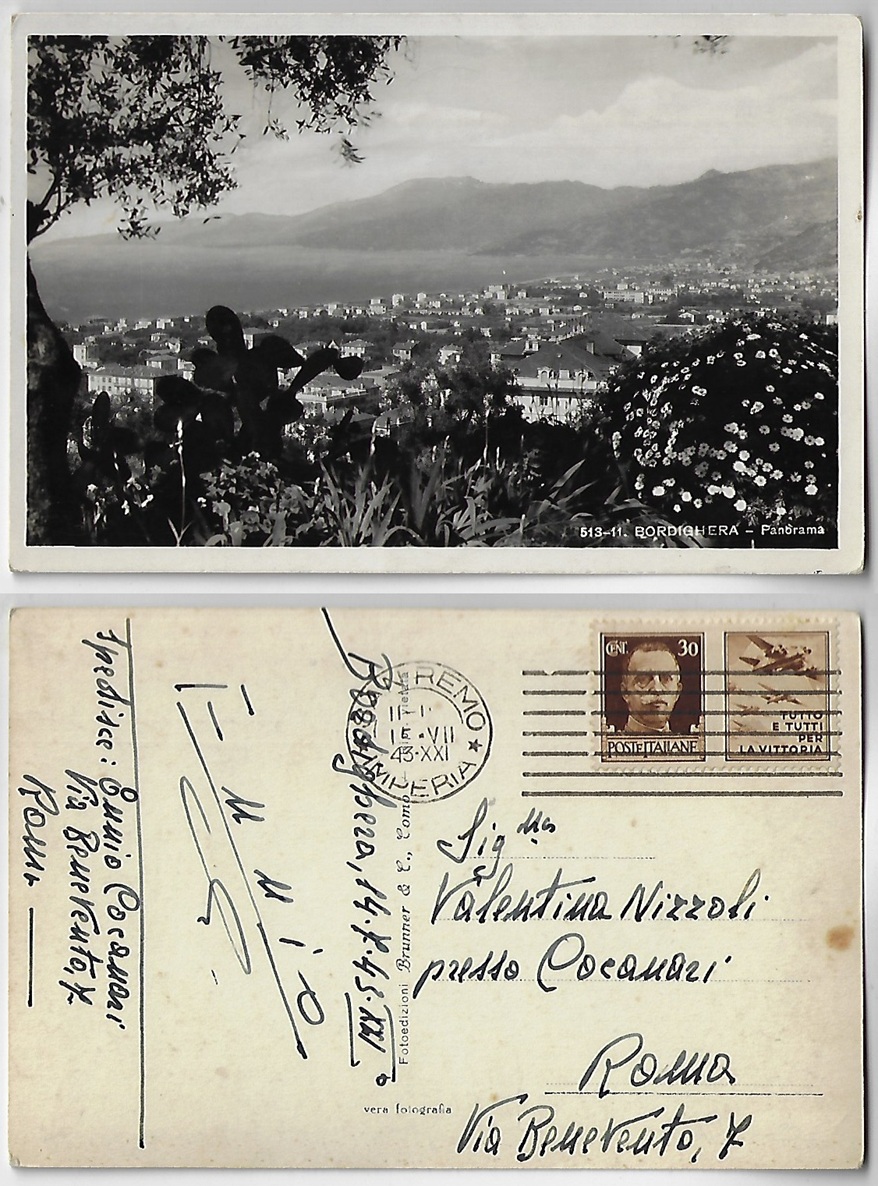 513-11. BORDIGHERA – Panorama
Spedisce: Ennio Cocanari
Via Benevento, 7
Roma
Ennio
Bordighera, 14.7.43.XXI°
Fotoedizioni Brunner & C., Como
vera fotografia
REMO
15 · VII
43-XXI
IMPERIA
CENT. 30
POSTE ITALIANE
TUTTO
E TUTTI
PER
LA VITTORIA
Sig.na
Valentina Nizzoli
presso Cocanari
Roma
Via Benevento, 7